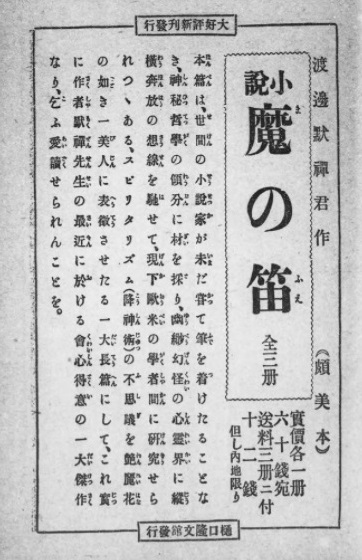 大好評新刊發行
渡邊默禪君作
小說
魔の笛
ま
ふえ
全三册
(頗美本)
實價各一册
六十錢宛
送料三册ニ付
十二錢
但し內地限り
本篇は、世間の小說家が未だ嘗て筆を着けたることな
き、神秘哲學の領分に材を採り、幽緲幻怪の心靈界に縱
橫奔放の想線を馳せて、現下歐米の學者間に研究せら
れつゝある、スピリタリズム(降神術)の不思議を艷麗花
の如き一美人に表徵させたる一大長篇にして、これ實
に作者默禪先生の最近に於ける會心得意の一大傑作
なり、乞ふ愛讀せられんことを。
樋口隆文館發行